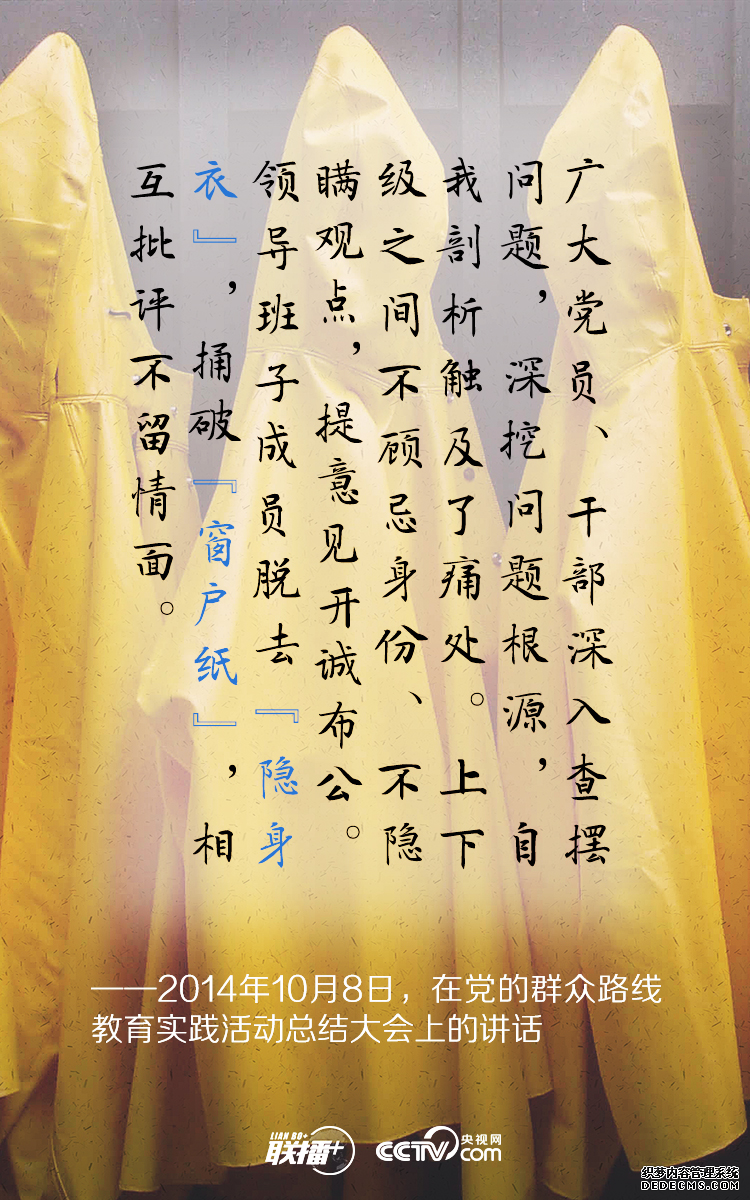 广大党员、干部深入查摆
问题，深挖问题根源，自
我剖析触及了痛处。上下
级之间不顾忌身份、不隐
瞒观点，提意见开诚布公。
领导班子成员脱去『隐身
衣』，捅破『窗户纸』，相
互批评不留情面。
——2014年10月8日，在党的群众路线
教育实践活动总结大会上的讲话
LIAN BO+
联播+
CCTV.com
央视网
织梦内容管理系统
DEDECMS.COM